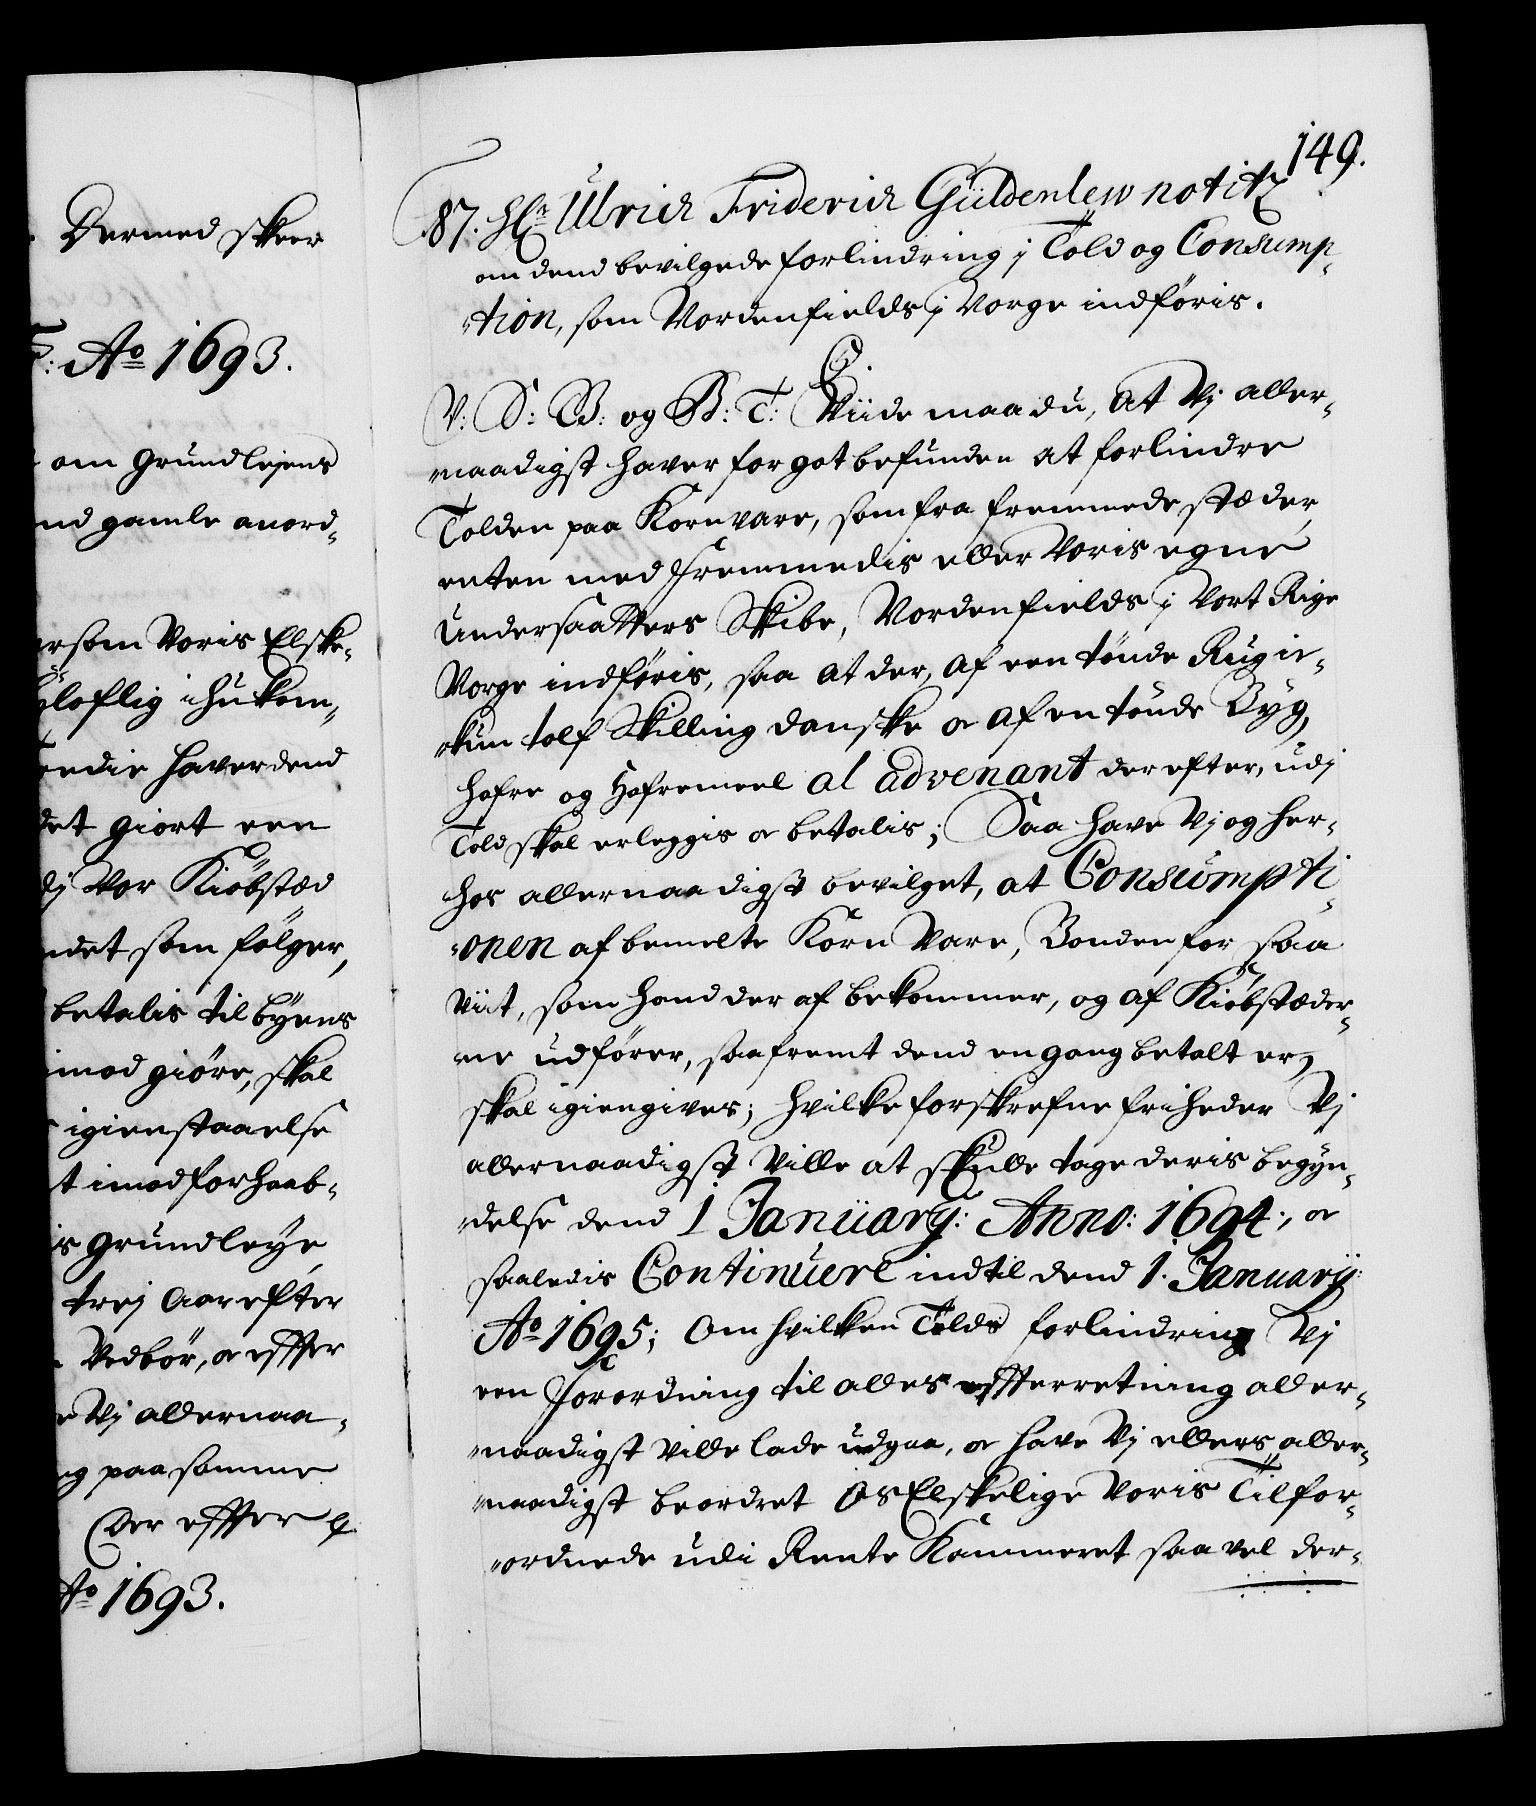 Dermed skeer
Ao 1693.
om Grundlejens
nd gamle anord-
ersom Voris Elske-
loflig ihukom-
redie haver dend
det giort een
dj Vor Kiöbstæd
ndet som fölger,
betalis til Byens
imod giöre, skal
igienstaaelse
t imod forhaab-
is Grundleye
trej Aar efter
Vedbör, oc effter
e Vj allernaa-
g paa samme
Der effter
Ao 1693.
149.
87. Hr Ulrich Friderich Güldenlew notitz
om dend bevilgede forlindring j Told og Consump-
-tion, som Nordenfields j Norge indföris.
C5.
V: S: B: og B: T: Viide maa du, At Vj aller-
naadigst haver for got befunden at forlindre
Tolden paa Kornvare, som fra fremmede stæder,
enten med fremmedis eller Voris egne
Undersaatters Skibe, Nordenfields j Vort Rige
Norge indföris, saa at der, af een tönde Rug ic-
-kun tolf Skilling danske oc af en tönde Byg,
Hafre og Hafremeel al advenant derefter, udj
Told skal erleggis oc betalis; Saa have Vj og her-
hos allernaadigst bevilget, at Consumpti-
-onen af bemelte Korn Vare, Bonden for saa
Viit, som hand der af bekommer, og af Kiöbstæder-
ne udförer, saafremt dend engang betalt er,
skal igiengives; hvilke forskrefne friheder Vj
allernaadigst Ville at skulle tage deris begyn-
-delse dend 1 January: Anno: 1694:, oc
saaledis Continuere indtil dend 1. January:
Ao 1695; Om hvilken Tolds forlindring Vj
een Forordning til alles effterretning aller-
naadigst Ville lade udgaa, oc have Vj ellers aller-
naadigst beordret Os Elskelige Voris Tilfor-
-ordnede udi Rente Kammeret saa vel der-